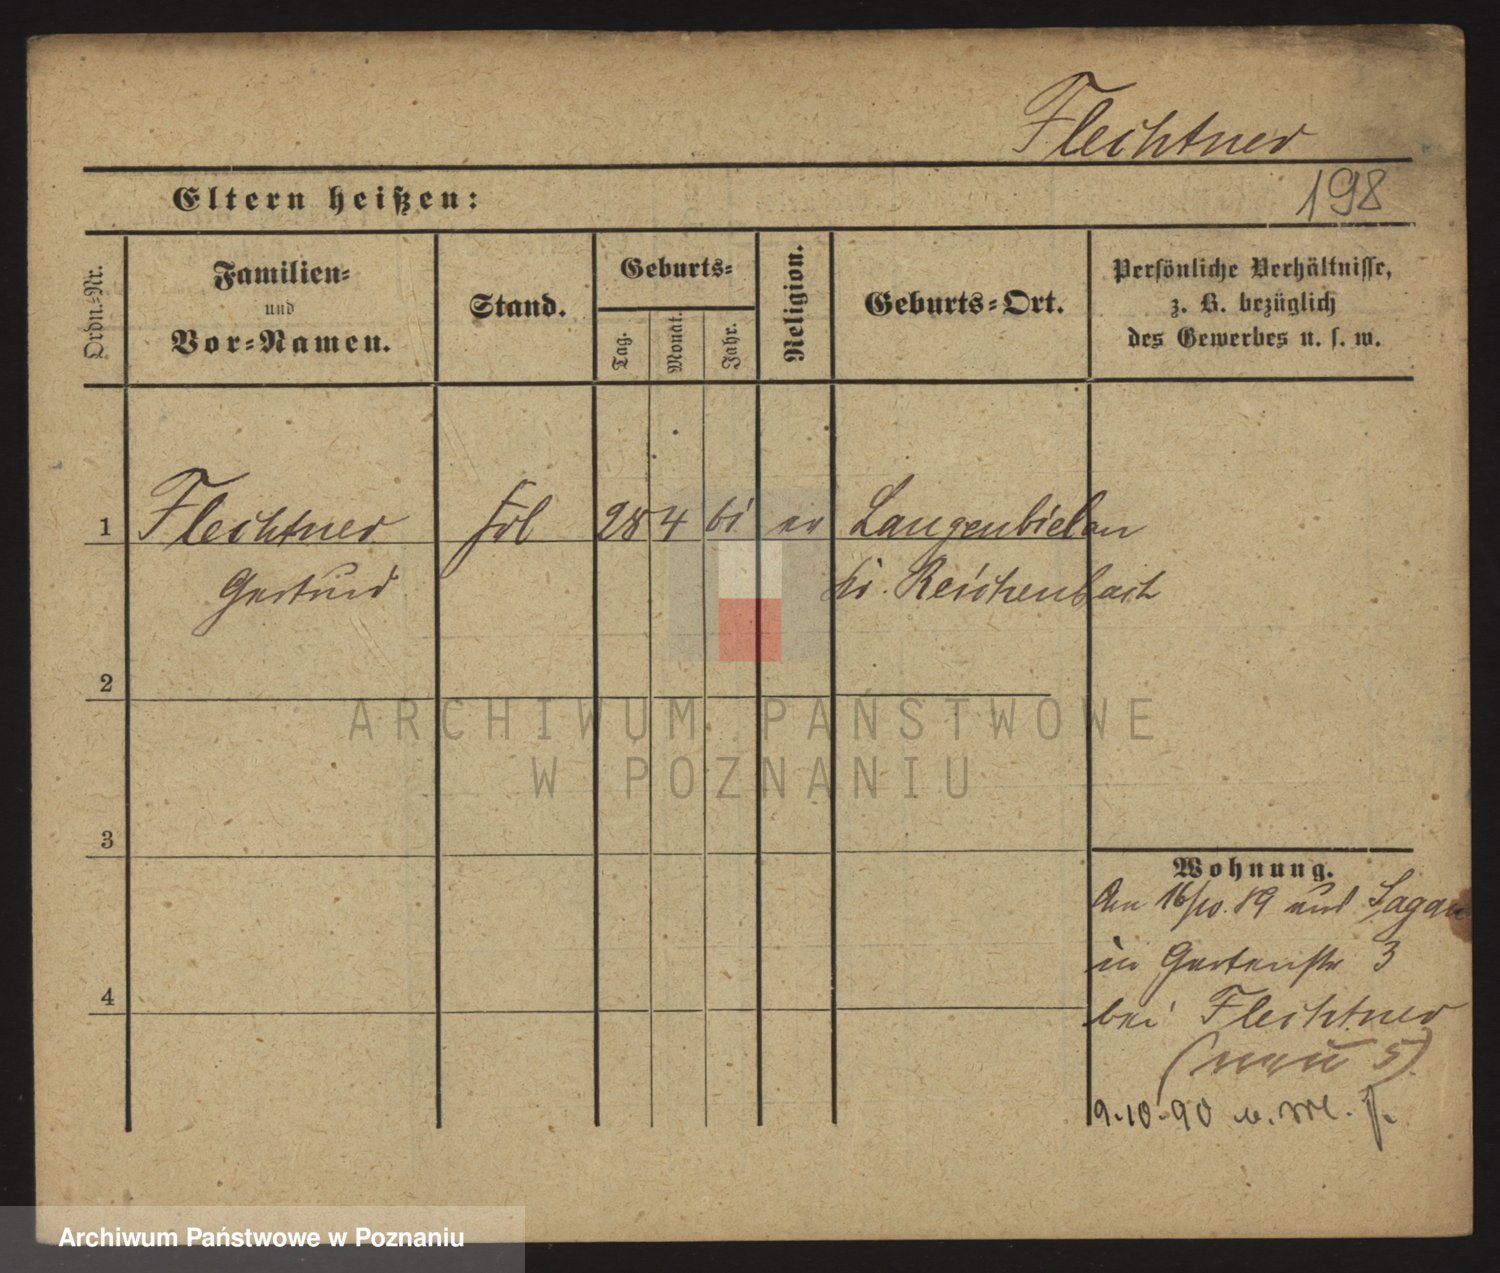 Flechtner
Eltern heißen:
198
Ordn.-Nr.
Familien-
und
Vor-Namen.
Stand.
Geburts-
Tag.
Monat.
Jahr.
Religion.
Geburts-Ort.
Persönliche Verhältnisse,
z. B. bezüglich
des Gewerbes u. s. w.
1 Flechtner Frl 28 4 61 ev Langenbielau
Gertrud Kr. Reichenbach
2
ARCHIWUM PAŃSTWOWE
W POZNANIU
3
Wohnung.
16/10. 89 Sagan
in Gartenstr 3
4
bei Flechtner
(neu 5)
9.10.90
Archiwum Państwowe w Poznaniu